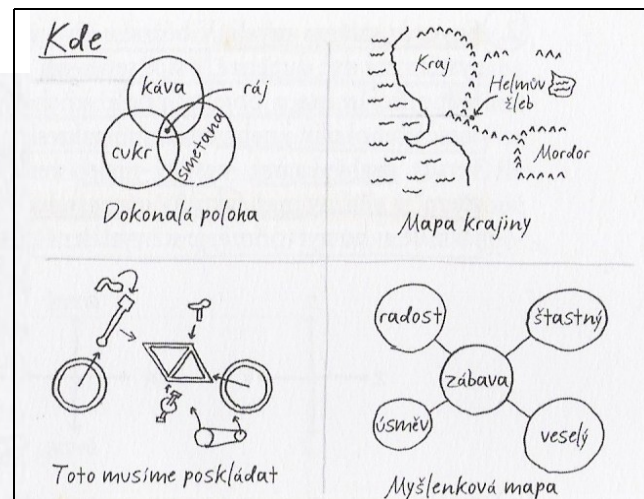 Kde
káva
ráj
cukr
smetana
Dokonalá poloha
Kraj
Helmův
žleb
Mordor
Mapa krajiny
Toto musíme poskládat
radost
šťastný
zábava
úsměv
veselý
Myšlenková mapa